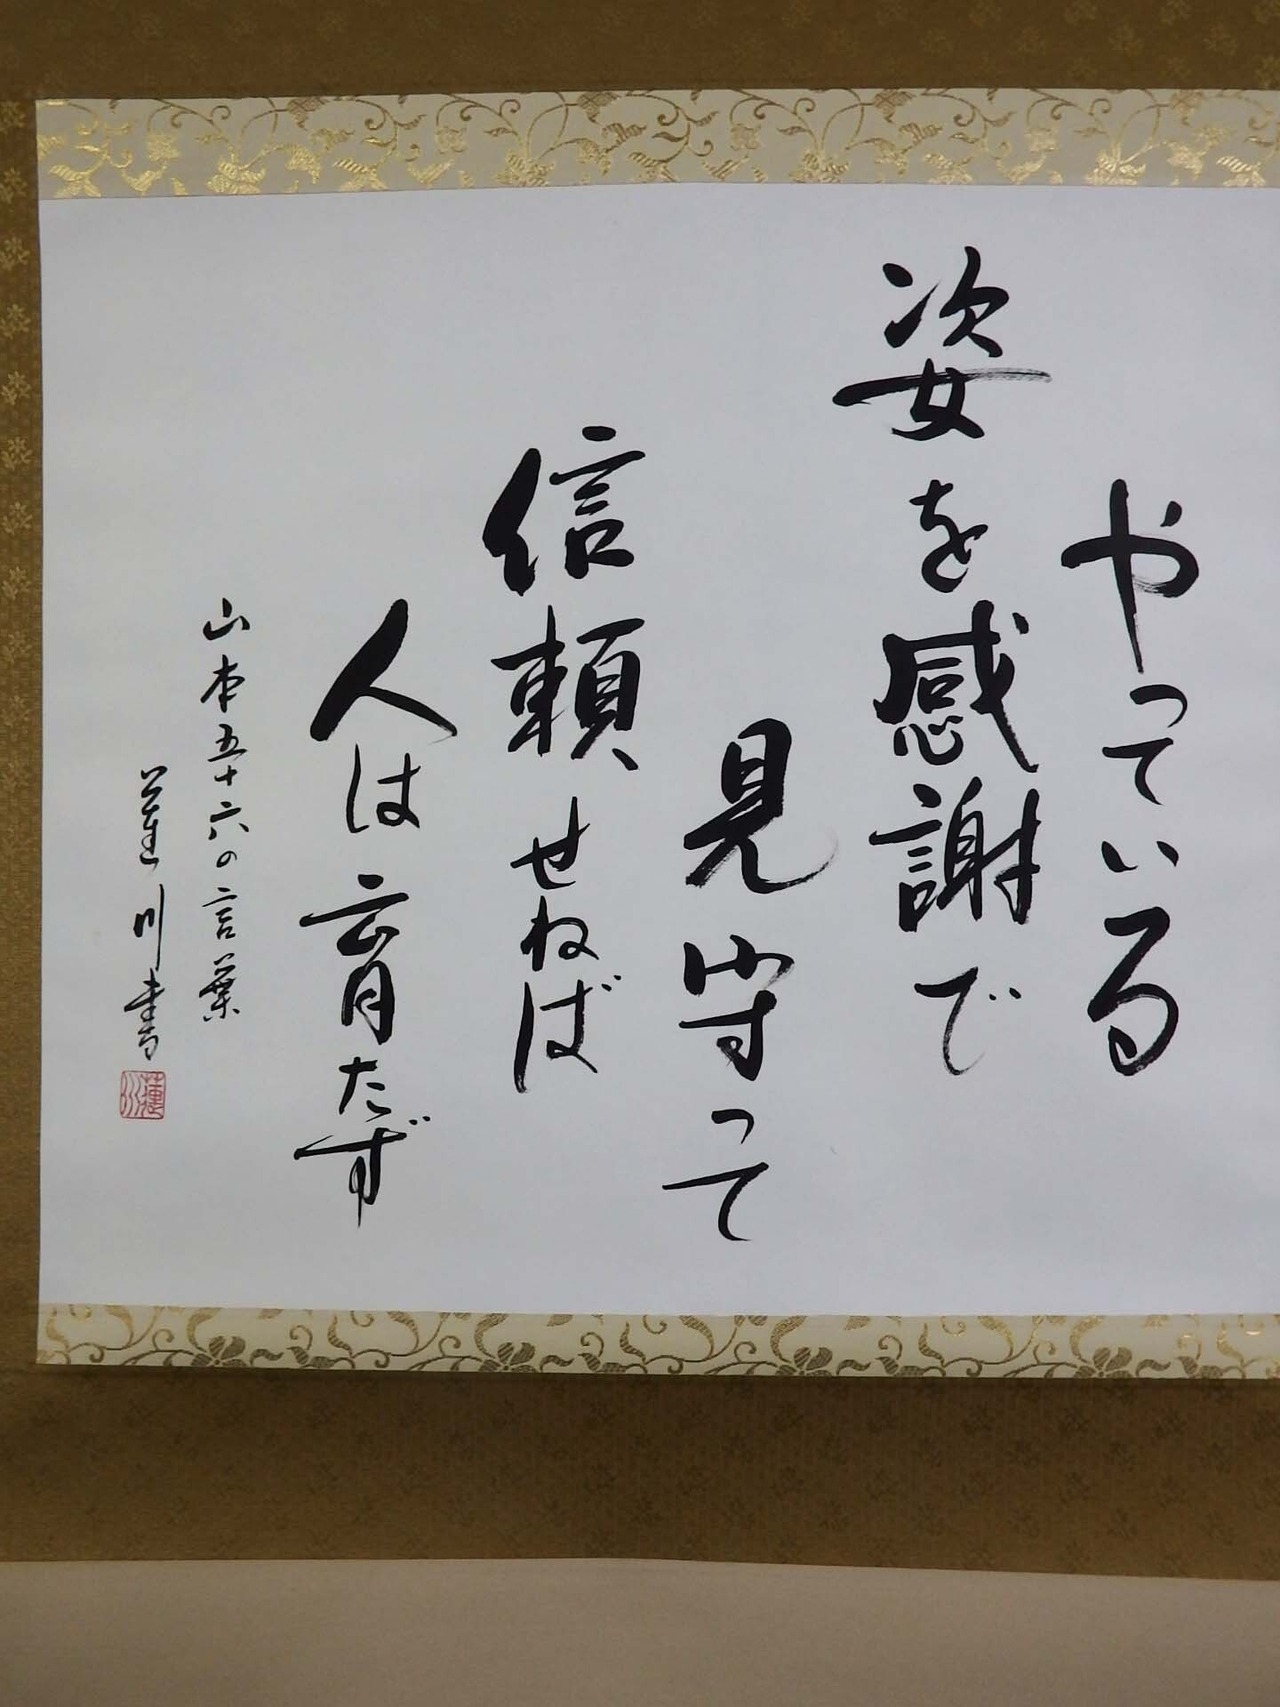 やっている
姿を感謝で
見守って
信頼せねば
人は育たず
山本五十六の言葉
蓮川書
蓮川